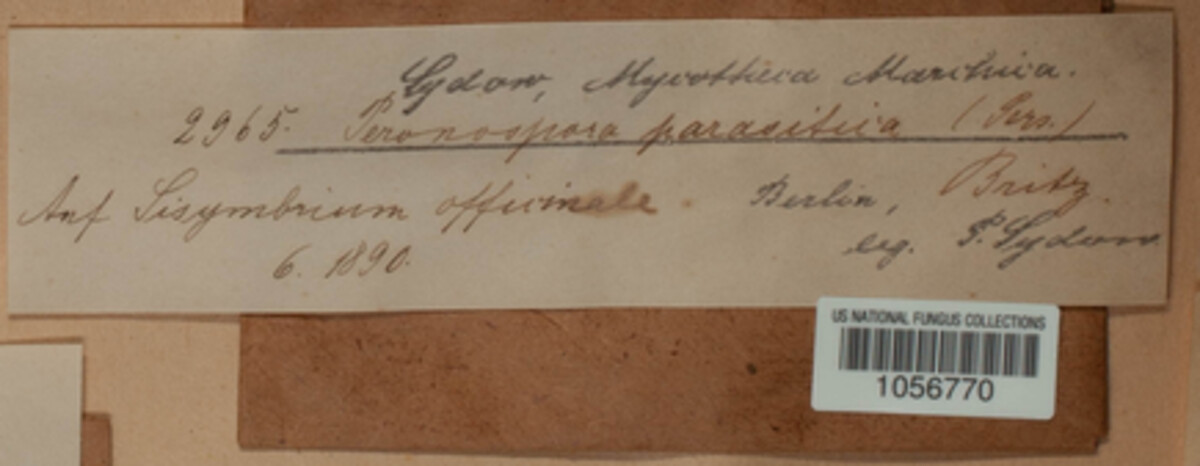 Sydow, Mycotheca Marchica.
2965. Peronospora parasitica (Pers.)
Auf Sisymbrium officinale. Berlin, Britz.
6. 1890. leg. P. Sydow
US NATIONAL FUNGUS COLLECTIONS
1056770